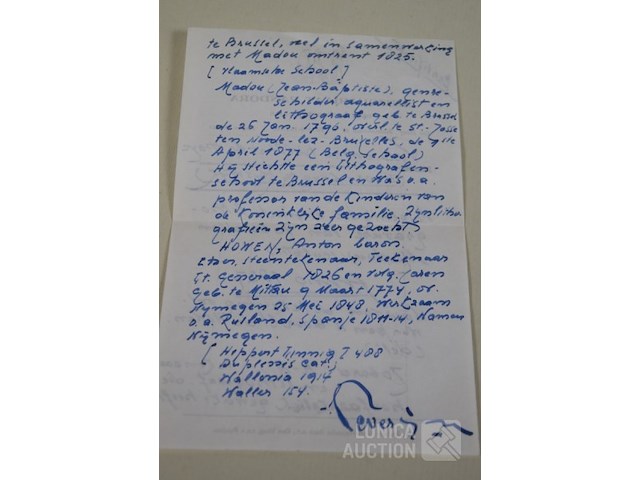 te Brussel, veel in samenwerking
met Madou omtrent 1825.
[Vlaamsche School]
Madou (Jean Baptiste), genre-
schilder, aquarellist en
lithograaf, geb. te Brussel
de 26 Jan. 1796, overl. te St. Josse
ten Noode-lez-Bruxelles, de
April 1877 (Belg. School)
Hij stichtte een lithografen-
school te Brussel en was o.a.
professor van de Kinderen van
de Koninklijke familie. Zijn litho
grafieën zijn zeer gezocht)
HOWEN, Anton baron.
Etser, Steentekenaar, Teekenaar
Lt. Generaal 1826 en volg. jaren
Geb. te Mittau 9 Maart 1774, ov.
Nijmegen 25 Mei 1848, werkzaam
o.a. Rusland, Spanje 1811-14, Namen
Nijmegen.
[Hippert Linnig I 488
Duplessis Cat.
Wallonia 1914
Waller 154.
LUNICA
AUCTION